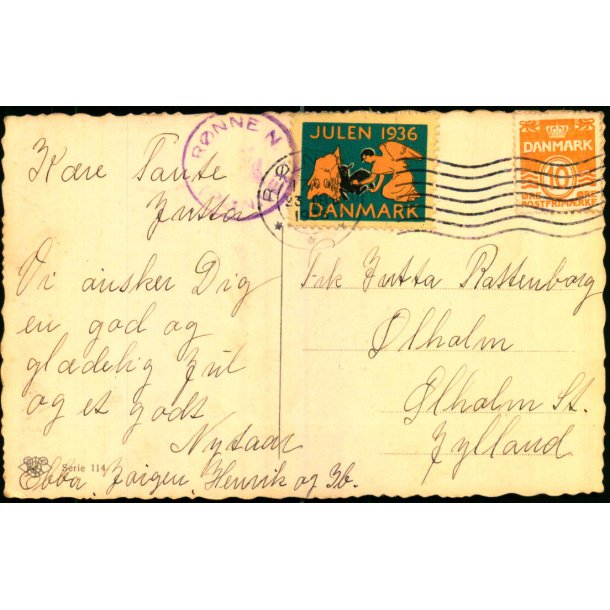 RØNNE N
JULEN 1936
DANMARK
DANMARK
10
ØRE
POSTFRIMÆRKE
Kære Tante
Jutta
Vi ønsker Dig
en god og
glædelig Jul
og et godt
Nytaar
Ebba, Jørgen, Henrik og Ib.
Serie 114
Frk Jutta Rattenborg
Ølholm
Ølholm St.
Jylland